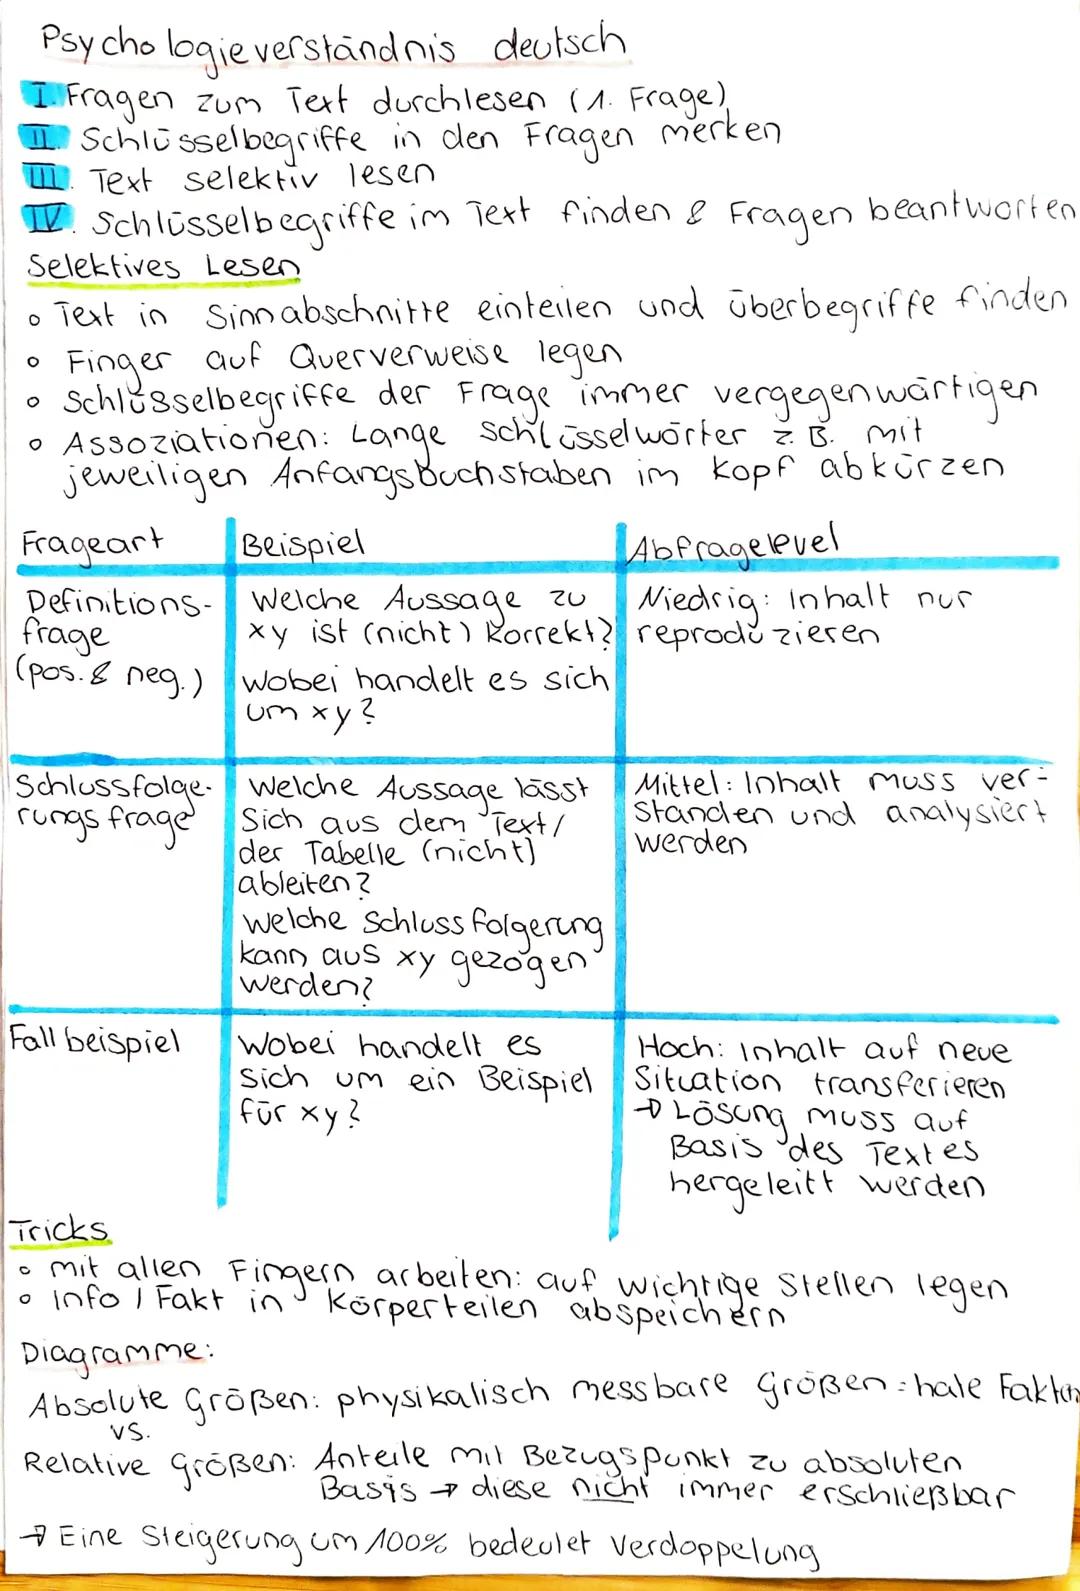 Psychologieverständnis deutsch
I. Fragen zum Text durchlesen (1. Frage)
II. Schlüsselbegriffe in den Fragen merken
III. Text selektiv lesen
IV. Schlüsselbegriffe im Text finden & Fragen beantworten
Selektives Lesen
o Text in Sinnabschnitte einteilen und überbegriffe finden
o Finger auf Querverweise legen
o Schlüsselbegriffe der Frage immer vergegenwärtigen
o Assoziationen: Lange Schlüsselwörter z.B. mit
jeweiligen Anfangsbuchstaben im Kopf abkürzen
Frageart
Beispiel
Abfragelevel
Definitions-
frage
(pos. & neg.)
Welche Aussage zu
xy ist (nicht) korrekt?
Wobei handelt es sich
um xy?
Niedrig: Inhalt nur
reproduzieren
Schlussfolge-
rungsfrage
Welche Aussage lässt
sich aus dem Text/
der Tabelle (nicht)
ableiten?
Welche Schlussfolgerung
kann aus xy gezogen
werden?
Mittel: Inhalt muss ver-
standen und analysiert
werden
Fallbeispiel
Wobei handelt es
sich um ein Beispiel
für xy?
Hoch: Inhalt auf neue
Situation transferieren
→ Lösung muss auf
Basis des Textes
hergeleitt werden
Tricks
o mit allen Fingern arbeiten: auf wichtige Stellen legen
o Info / Fakt in Körperteilen abspeichern
Diagramme:
Absolute Größen: physikalisch messbare Größen = hale Fakten
vs.
Relative Größen: Anteile mit Bezugspunkt zu absoluten
Basis → diese nicht immer erschließbar
→ Eine Steigerung um 100% bedeutet Verdoppelung